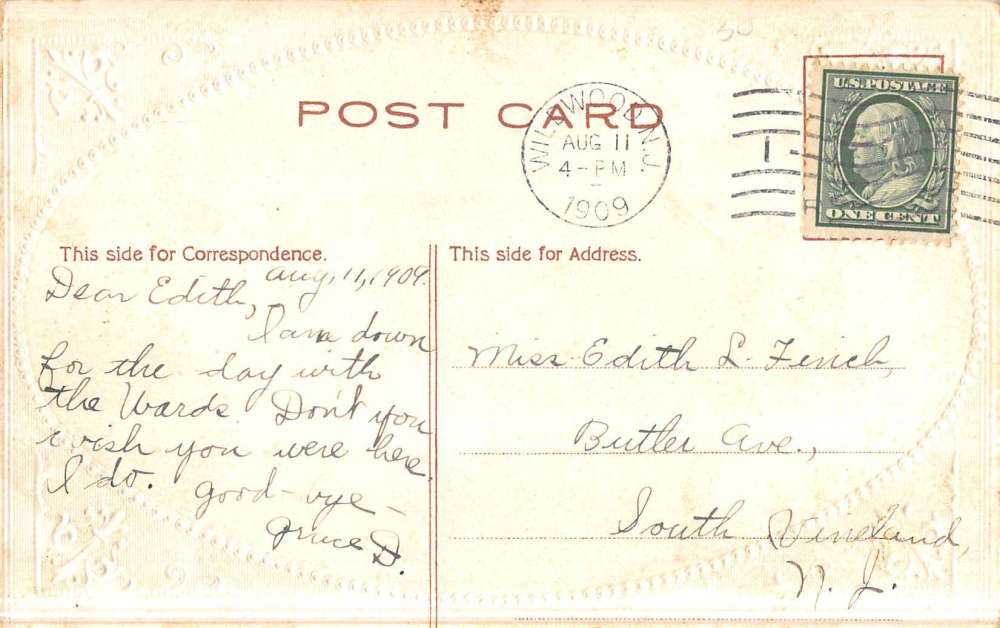 POST CARD
WILDWOOD N.J.
AUG 11
4-PM
1909
1
U.S. POSTAGE
ONE CENT
This side for Correspondence.
This side for Address.
Aug, 11, 1909.
Dear Edith,
I am down
for the day with
the Wards. Don't you
wish you were here
I do. Good-bye-
D.
Miss Edith L. Finch,
Butler Ave.,
South Vineland,
N. J.